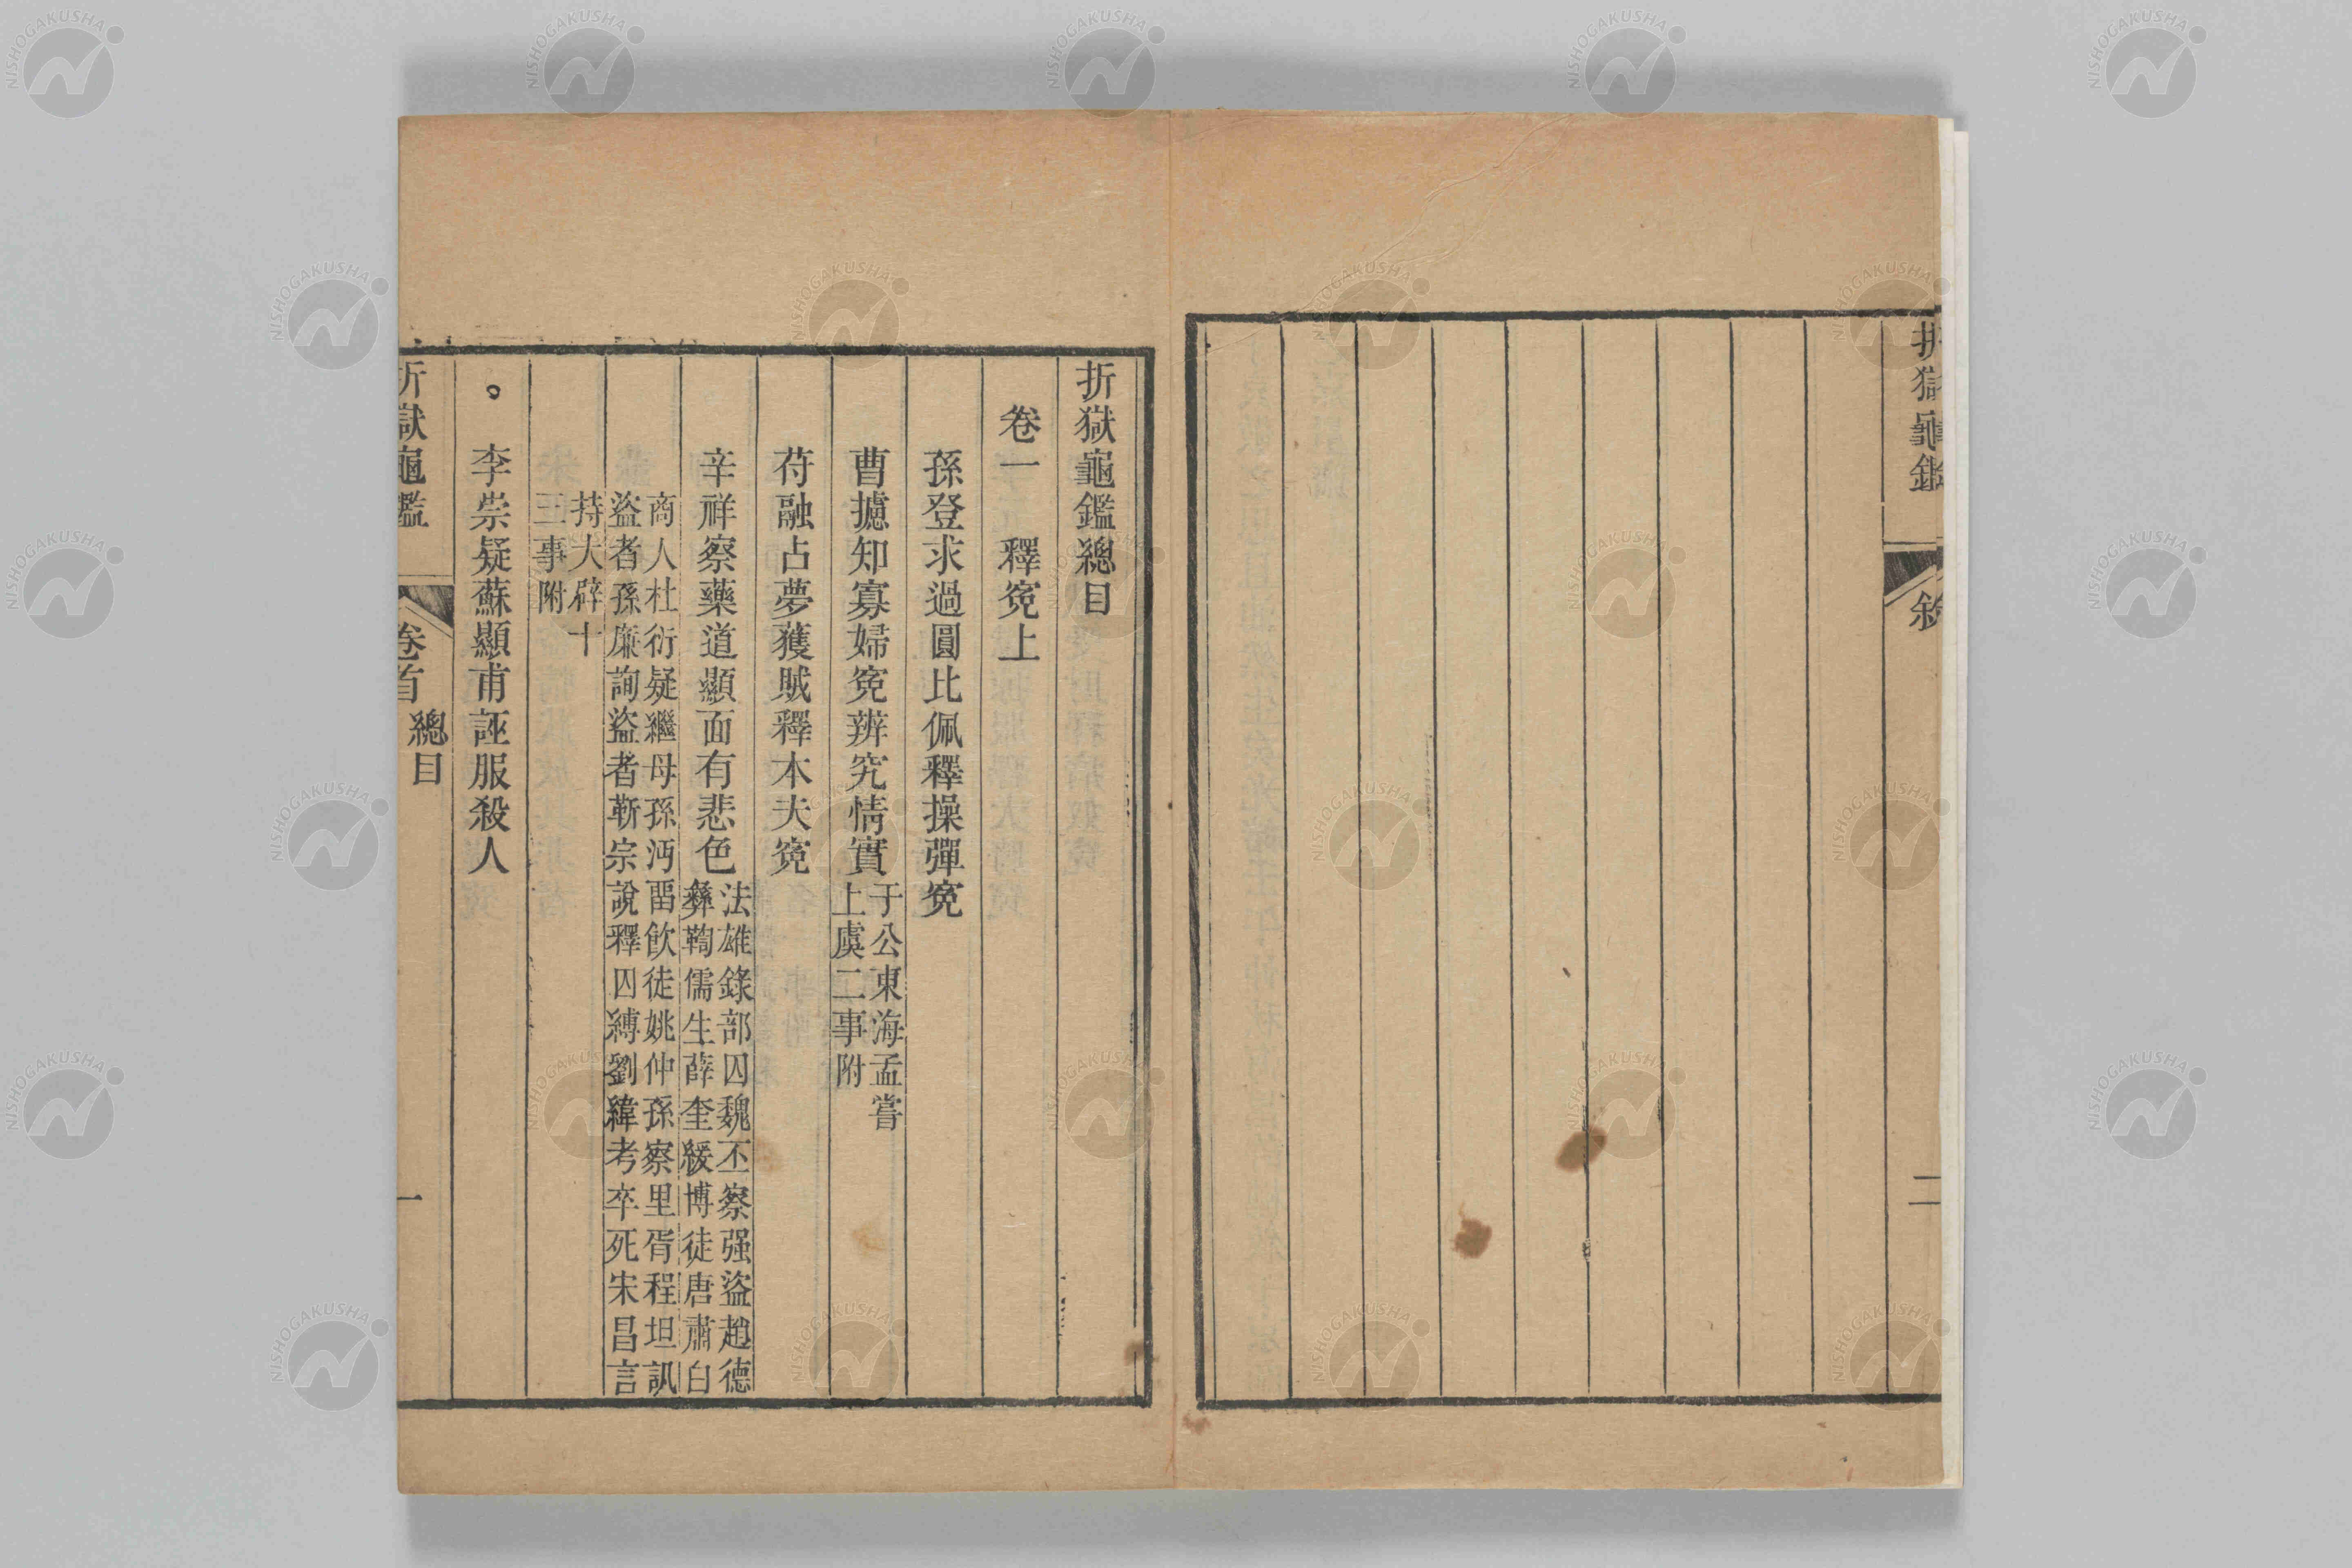 折獄龜鑑
敘
二
折獄龜鑑總目
卷一 釋寃上
孫登求過圓比佩釋操彈寃
曹攄知寡婦寃辨究情實 于公東海孟嘗
上虞二事附
苻融占夢獲賊釋木夫寃
辛祥察藥道顯面有悲色 法雄錄部囚魏丕察强盜趙德
彝鞫儒生薛奎緩博徒唐肅白
商人杜衍疑繼母孫沔畱飲徒姚仲孫察里胥程坦訊
盜者孫廉詢盜者靳宗說釋囚縛劉緯考卒死宋昌言
持大辟十
三事附
。 李崇疑蘇顯甫誣服殺人
折獄龜鑑
卷首
總目
一
NISHOGAKUSHA